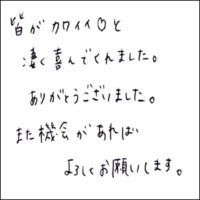 皆がカワイイ♡と
凄く喜んでくれました。
ありがとうございました。
また機会があれば
よろしくお願いします。